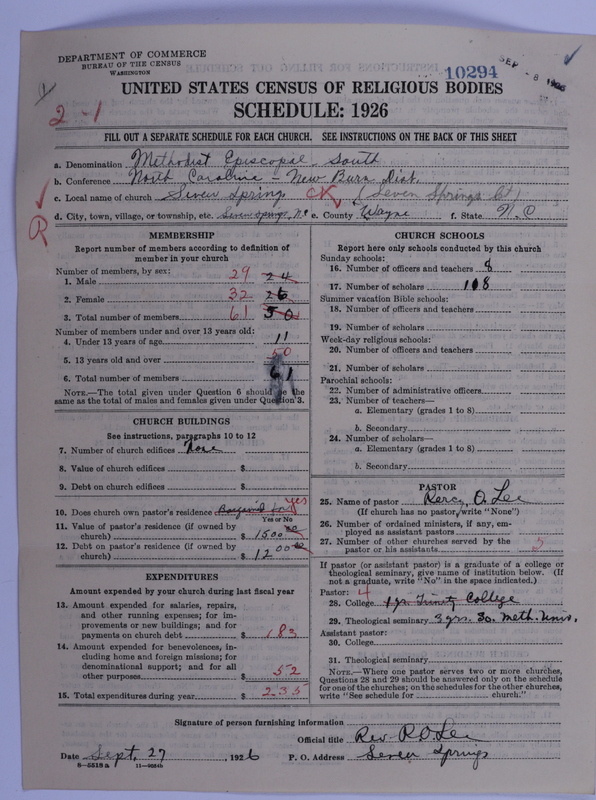 DEPARTMENT OF COMMERCE
BUREAU OF THE CENSUS
WASHINGTON
10294
SEP 8 1926
2-1
UNITED STATES CENSUS OF RELIGIOUS BODIES
SCHEDULE: 1926
FILL OUT A SEPARATE SCHEDULE FOR EACH CHURCH. SEE INSTRUCTIONS ON THE BACK OF THIS SHEET
a. Denomination Methodist Episcopal South
b. Conference North Carolina - New Bern Dist.
c. Local name of church Seven Spring CK (Seven Springs Ct)
d. City, town, village, or township, etc. Seven Springs, N.C e. County Wayne f. State N.C
R
MEMBERSHIP
Report number of members according to definition of
member in your church
Number of members, by sex:
1. Male 29 24
2. Female 32 26
3. Total number of members 61 50
Number of members under and over 13 years old:
4. Under 13 years of age 11
5. 13 years old and over 50
6. Total number of members 61
NOTE.—The total given under Question 6 should be the
same as the total of males and females given under Question 3.
CHURCH BUILDINGS
See instructions, paragraphs 10 to 12
7. Number of church edifices None
8. Value of church edifices $
9. Debt on church edifices $
10. Does church own pastor's residence yes
Yes or No
11. Value of pastor's residence (if owned by
church) $ 1500 00
12. Debt on pastor's residence (if owned by
church) $ 1200 00
EXPENDITURES
Amount expended by your church during last fiscal year
13. Amount expended for salaries, repairs,
and other running expenses; for im-
provements or new buildings; and for
payments on church debt $ 183
14. Amount expended for benevolences, in-
cluding home and foreign missions; for
denominational support; and for all
other purposes $ 52
15. Total expenditures during year $ 235
CHURCH SCHOOLS
Report here only schools conducted by this church
Sunday schools:
16. Number of officers and teachers 8
17. Number of scholars 108
Summer vacation Bible schools:
18. Number of officers and teachers
19. Number of scholars
Week-day religious schools:
20. Number of officers and teachers
21. Number of scholars
Parochial schools:
22. Number of administrative officers
23. Number of teachers—
a. Elementary (grades 1 to 8)
b. Secondary
24. Number of scholars—
a. Elementary (grades 1 to 8)
b. Secondary
PASTOR
25. Name of pastor Percy O. Lee
(If church has no pastor, write "None")
26. Number of ordained ministers, if any, em-
ployed as assistant pastors
27. Number of other churches served by the
pastor or his assistants 5
If pastor (or assistant pastor) is a graduate of a college or
theological seminary, give name of institution below. (If
not a graduate, write "No" in the space indicated.)
Pastor: 4
28. College 1 yr. Trinity College
29. Theological seminary 3 yrs. So. Meth. Univ.
Assistant pastor:
30. College
31. Theological seminary
NOTE.—Where one pastor serves two or more churches,
Questions 28 and 29 should be answered only on the schedule
for one of the churches; on the schedules for the other churches,
write "See schedule for church."
Signature of person furnishing information
Official title Rev. P.O. Lee
Date Sept. 27, 1926 P. O. Address Seven Springs
8—5518a 11—9884b